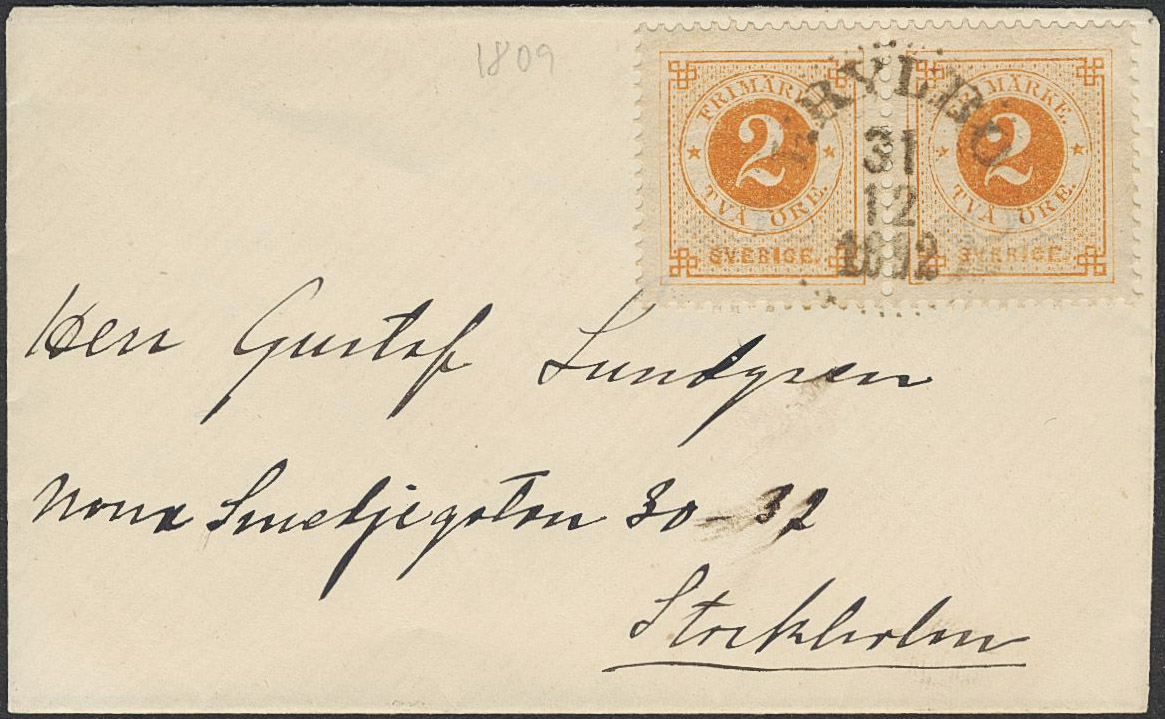 1809
FRIMÄRKE.
2
TVÅ ÖRE.
SVERIGE.
FRIMÄRKE.
2
TVÅ ÖRE.
SVERIGE.
KRYLBO
31
12
1892
Herr Gustaf Lundgren
Norra Smedjegatan 30 – 32
Stockholm